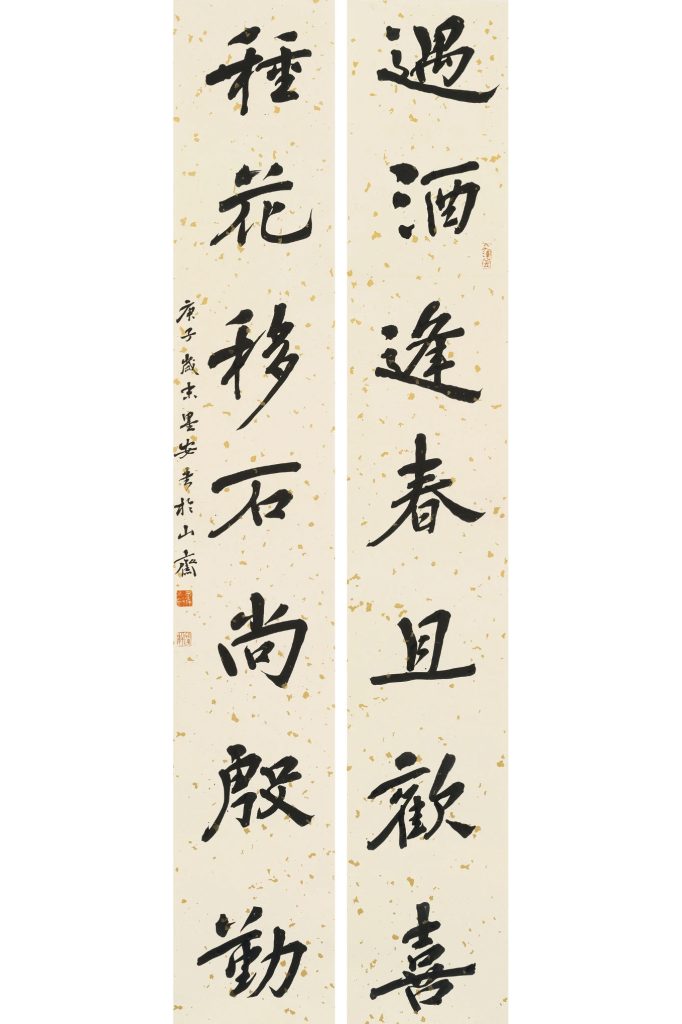 遇酒逢春且歡喜
種花移石尚殷勤
庚子歲末墨安書於山齋